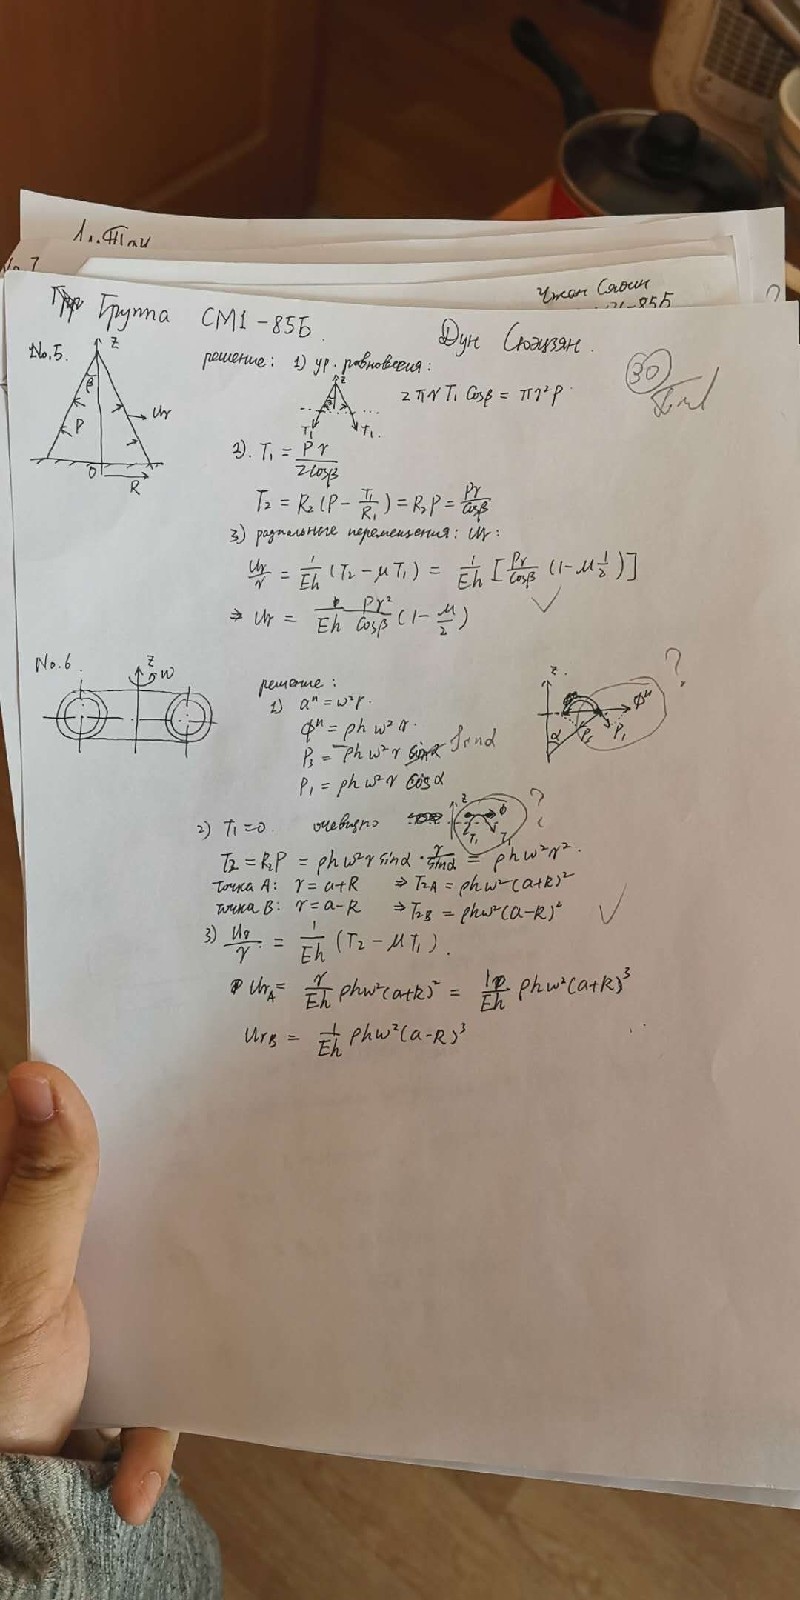 No.7
Чжан Сяоин
?
Группа СМ1-85Б
Дун Сюэцзян.
30
No.5.
решение: 1) ур. равновесия:
z
β
P
Ur
0
R
z
T₁
T₁
2πr T₁ Cosβ = πr²P
2). T₁ = Pr/2Cosβ
T₂ = R₂(P - T₁/R₁) = R₂P = Pr/Cosβ
3) радиальные перемещения: Ur:
Ur/r = 1/Eh (T₂ - μT₁) = 1/Eh [Pr/Cosβ (1 - μ1/2)]
⇒ Ur = 1/Eh Pr²/Cosβ (1 - μ/2)
No.6.
z
ω
решение:
1) aⁿ = ω²r.
Φᵘ = ρhω²r.
P₃ = ρhω²r Sinα
P₁ = ρhω²r Cosα
z
Φᵘ
α
P₁
?
2) T₁=0 очевидно
z
Φ
T₁
?
T₂ = R₂P = ρhω²r sinα · r/sinα = ρhω²r².
точка A: r = a+R ⇒ T₂A = ρhω²(a+R)²
точка B: r = a-R ⇒ T₂B = ρhω²(a-R)²
3) Ur/r = 1/Eh (T₂ - μT₁).
UrA = r/Eh ρhω²(a+R)² = 1/Eh ρhω²(a+R)³
UrB = 1/Eh ρhω²(a-R)³